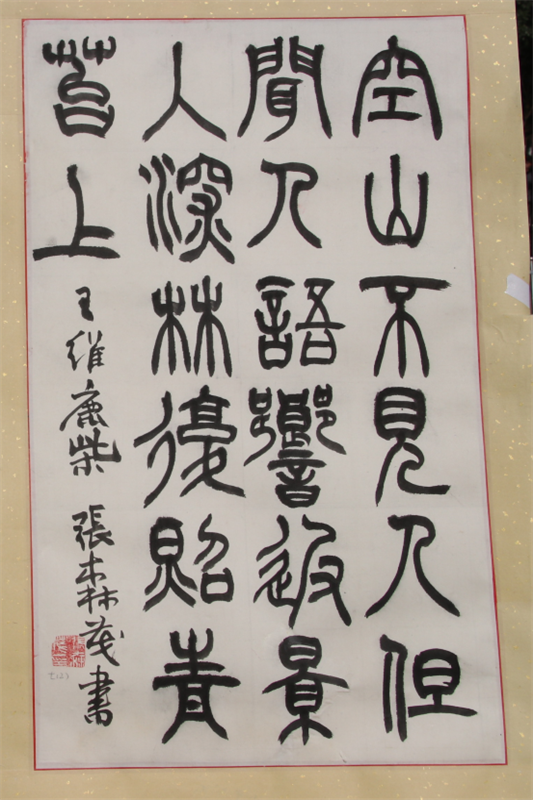 空山不見人但
聞人語響返景
入深林復照青
苔上
王維鹿柴 張森茂書